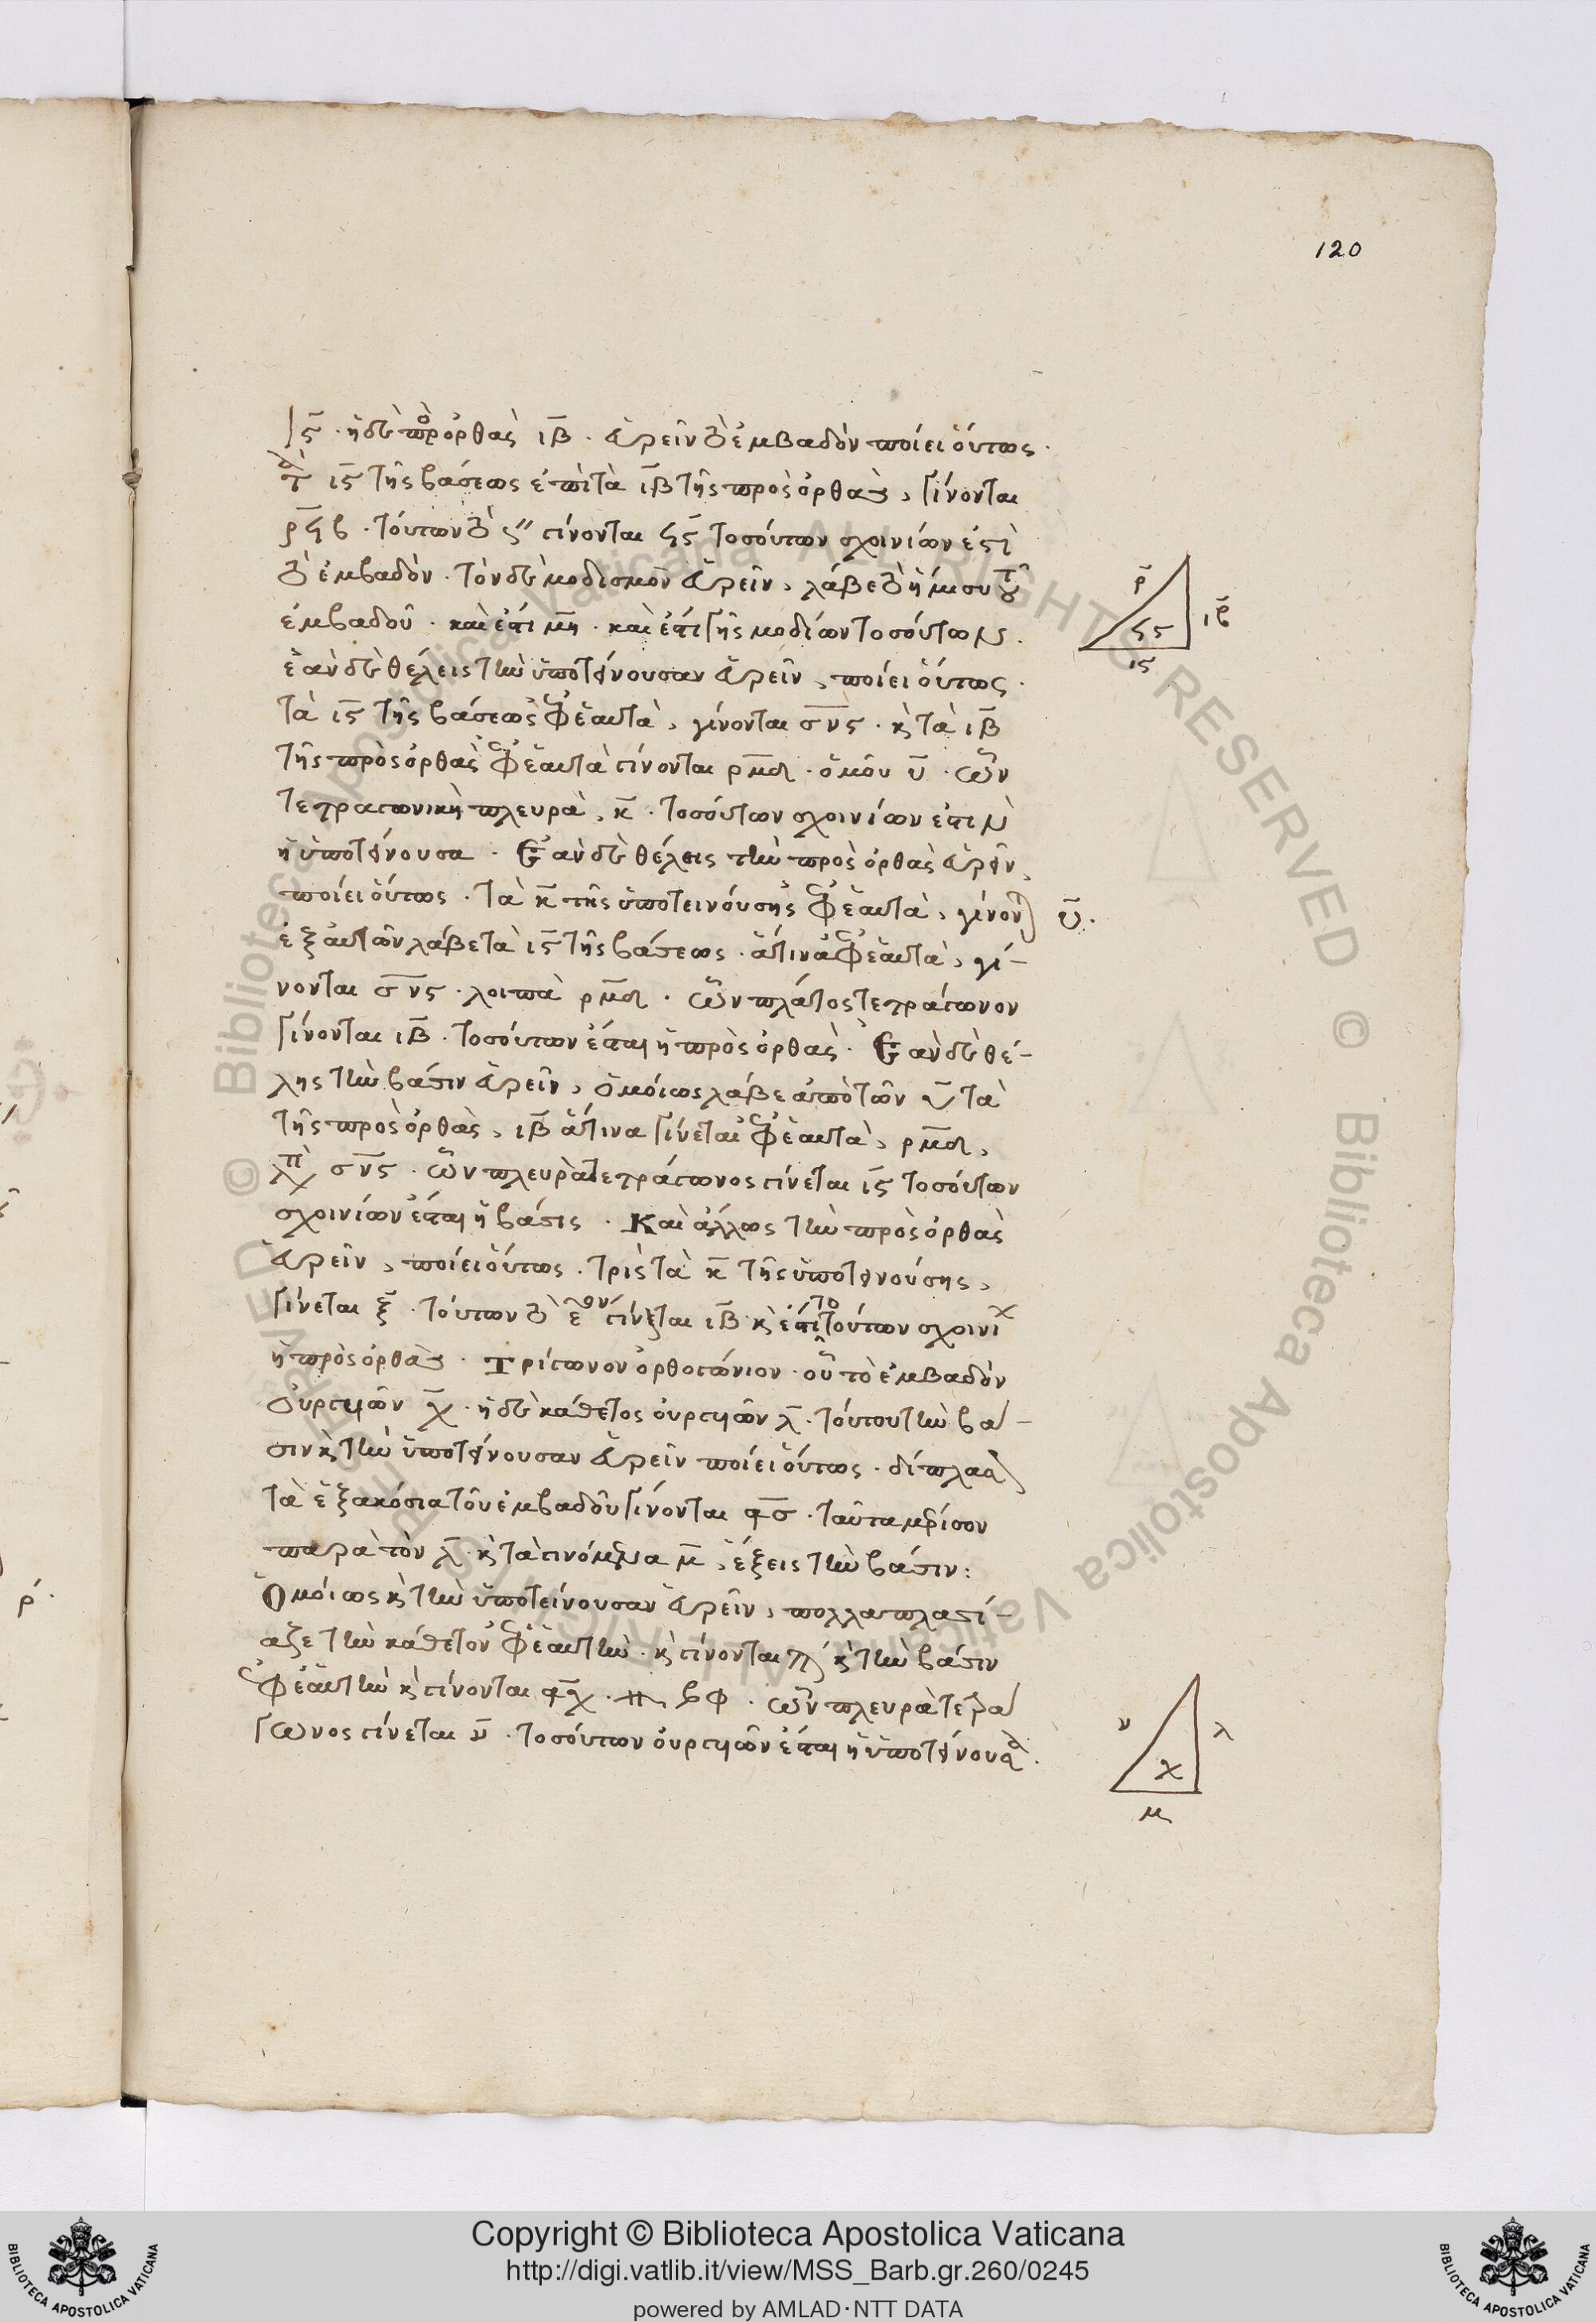 120
ιϛ̄ · ἡ δὲ πρὸς ὀρθὰς ιβ̄ · εὑρεῖν τὸ ἐμβαδὸν ποίει οὕτως ·
τὰ ιϛ̄ τῆς βάσεως ἐπὶ τὰ ιβ̄ τῆς πρὸς ὀρθὰς, γίνονται
ρϟβ · τούτων τὸ ϛ'' γίνονται ϟϛ̄ τοσούτων σχοινίων ἐστὶ
τὸ ἐμβαδὸν · τὸν δὲ μοδισμὸν εὑρεῖν, λάβε τὸ ἥμισυ τοῦ
ἐμβαδοῦ · καὶ ἔστι μ̄η · καὶ ἔστι γῆς μοδίων τοσούτων ·
ἐὰν δὲ θέλεις τὴν ὑποτείνουσαν εὑρεῖν, ποίει οὕτως ·
τὰ ιϛ̄ τῆς βάσεως ἐφ' ἑαυτὰ, γίνονται σ̄ν̄ϛ · κ τὰ ιβ̄
τῆς πρὸς ὀρθὰς ἐφ' ἑαυτὰ γίνονται ρμ̄δ · ὁμοῦ ῡ · ὧν
τετραγωνικὴ πλευρὰ, κ̄ · τοσούτων σχοινίων ἐστὶν
ἡ ὑποτείνουσα · Ἐὰν δὲ θέλεις τὴν πρὸς ὀρθὰς εὑρεῖν,
ποίει οὕτως · τὰ κ̄ τῆς ὑποτεινούσης ἐφ' ἑαυτὰ, γίνοντ ῡ ·
ἐξ αὐτῶν λάβε τὰ ιϛ̄ τῆς βάσεως · ἅτινα ἐφ' ἑαυτὰ, γί-
νονται σ̄ν̄ϛ · λοιπὰ ρμ̄δ · ὧν πλάτος τετράγωνον
γίνονται ιβ̄ · τοσούτων ἔσται ἡ πρὸς ὀρθὰς · Ἐὰν δὲ θέ-
λης τὴν βάσιν εὑρεῖν, ὁμοίως λάβε ἀπὸ τῶν ῡ τὰ
τῆς πρὸς ὀρθὰς, ιβ̄ ἅτινα γίνεται ἐφ' ἑαυτὰ, ρμ̄δ,
λ π σν̄ϛ · ὧν πλευρὰ τετράγωνος γίνεται ιϛ̄ τοσούτων
σχοινίων ἔσται ἡ βάσις · Καὶ ἄλλως τὴν πρὸς ὀρθὰς
εὑρεῖν, ποίει οὕτως · τρὶς τὰ κ̄ τῆς ὑποτεινούσης,
γίνεται ξ̄ · τούτων τὸ ε̄ον γίνεται ιβ̄ κ ἔστι τοτούτων σχοινι
ἡ πρὸς ὀρθὰς · Τρίγωνον ὀρθογώνιον · οὗ τὸ ἐμβαδὸν
ὀυργιῶν χ̄ · ἡ δὲ κάθετος ὀυργιῶν λ̄ · τούτου τὴν βά-
σιν κ τὴν ὑποτείνουσαν εὑρεῖν ποίει οὕτως · δίπλασ
τὰ ἑξακόσια τοῦ ἐμβαδοῦ γίνονται ͵ασ̄ · ταῦτα μέρισον
παρὰ τὸν λ̄ · κ τὰ γινόμενα μ̄, ἕξεις τὴν βάσιν :
Ὁμοίως κ τὴν ὑποτείνουσαν εὑρεῖν, πολλαπλασί-
αζε τὴν κάθετον ἐφ' ἑαυτὴν · κ γίνονται ϡ κ τὴν βάσιν
ἐφ' ἑαυτὴν κ γίνονται ͵αχ̄ · βφ · ὧν πλευρὰ τετρά
γωνος γίνεται ν̄ · τοσούτων ὀυργιῶν ἔσται ἡ ὑποτείνουσα ·
ρ̄
ιβ̄
ϟϛ
ιϛ
ν
λ
χ
μ
Copyright © Biblioteca Apostolica Vaticana
http://digi.vatlib.it/view/MSS_Barb.gr.260/0245
powered by AMLAD·NTT DATA
BIBLIOTECA APOSTOLICA VATICANA
BIBLIOTECA APOSTOLICA VATICANA
© Biblioteca Apostolica Vaticana ALL RIGHTS RESERVED © Biblioteca Apostolica Vaticana ALL RIGHTS RESERVED